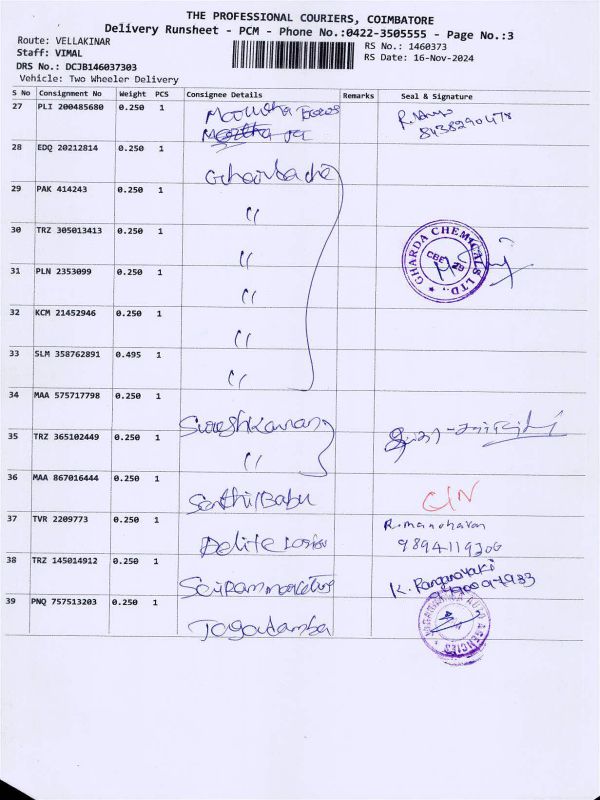 THE PROFESSIONAL COURIERS, COIMBATORE
Delivery Runsheet - PCM - Phone No.:0422-3505555 - Page No.:3
Route: VELLAKINAR
Staff: VIMAL
DRS No.: DCJB146037303
Vehicle: Two Wheeler Delivery
RS No.: 1460373
RS Date: 16-Nov-2024
S No Consignment No Weight PCS Consignee Details Remarks Seal & Signature
27 PLI 200485680 0.250 1
28 EDQ 20212814 0.250 1
29 PAK 414243 0.250 1 "
30 TRZ 305013413 0.250 1 " GHARDA CHEMICALS LTD.,
31 PLN 2353099 0.250 1 "
32 KCM 21452946 0.250 1 "
33 SLM 358762891 0.495 1 "
34 MAA 575717798 0.250 1 SureshKannan
35 TRZ 365102449 0.250 1 "
36 MAA 867016444 0.250 1 SenthilBabu
37 TVR 2209773 0.250 1 R.manoharan
9894119306
38 TRZ 145014912 0.250 1 Sairam marketing K. Ranganayaki
39 PNQ 757513203 0.250 1 Jagadamba AGENCIES